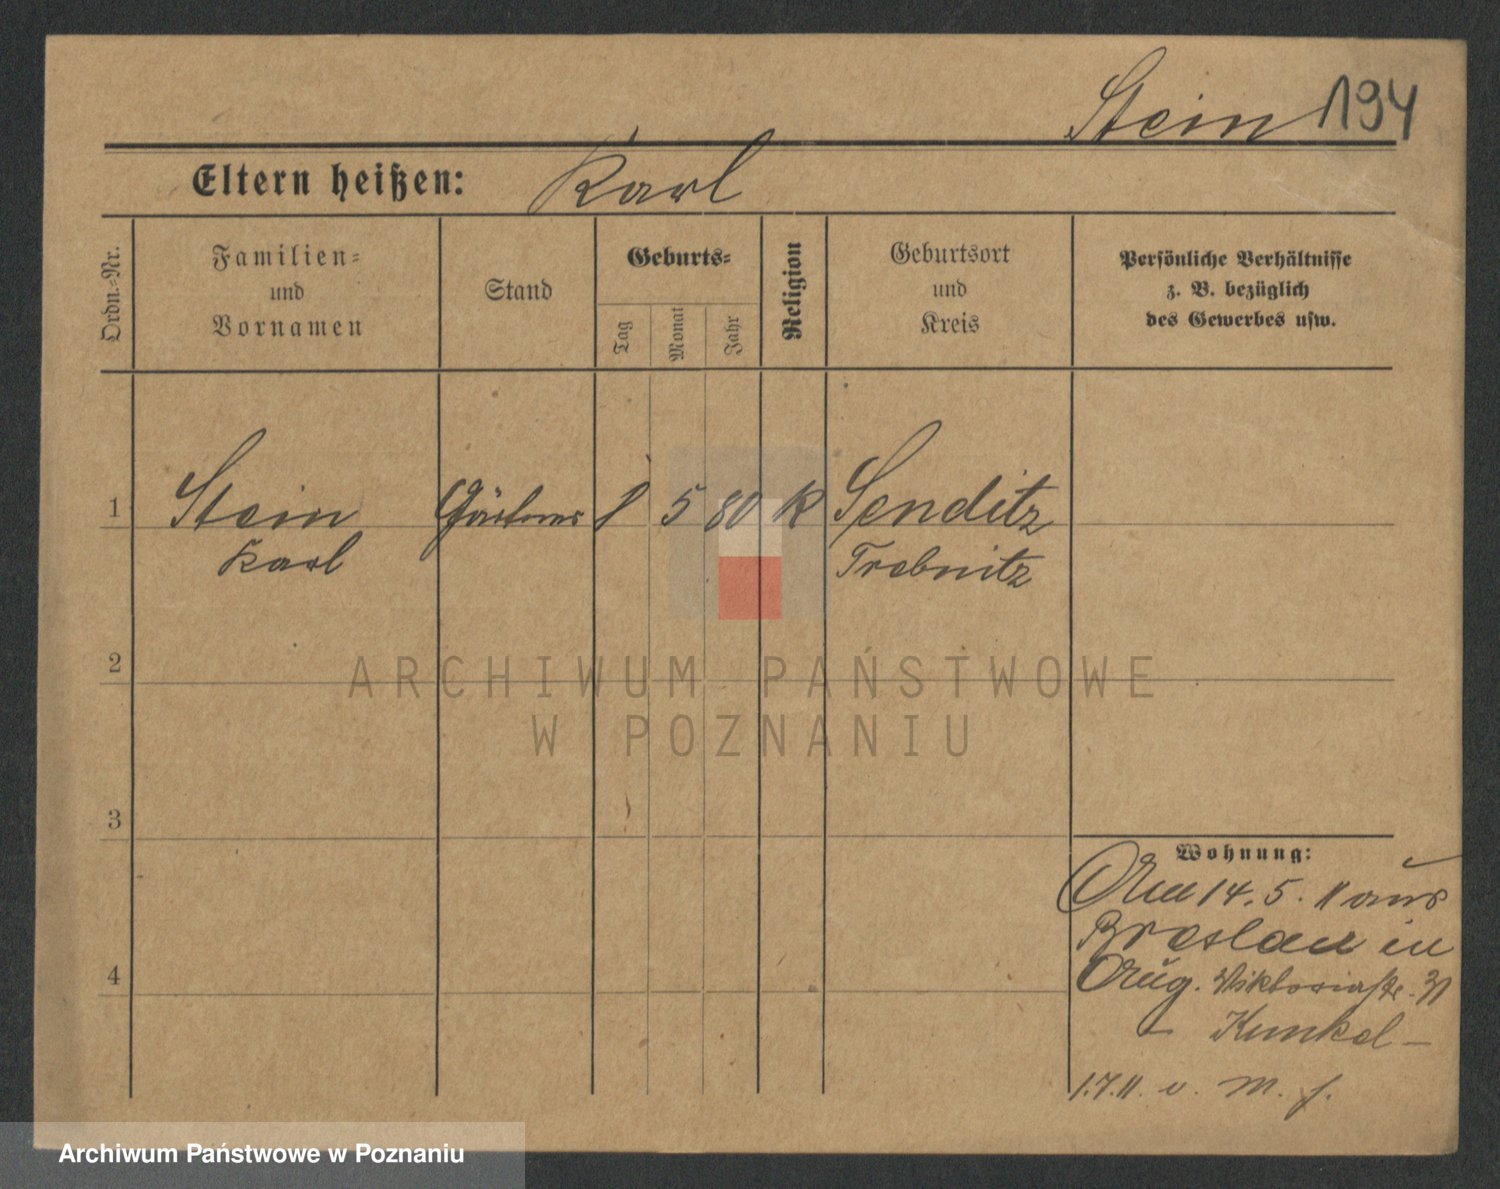 Stein 194
Eltern heißen: Karl
Ordn.-Nr.
Familien-
und
Vornamen
Stand
Geburts-
Tag
Monat
Jahr
Religion
Geburtsort
und
Kreis
Persönliche Verhältnisse
z. B. bezüglich
des Gewerbes usw.
1 Stein Gärtner 1 5 80 K Senditz
Karl Trebnitz
2
3
4
Wohnung:
14. 5. 11 aus
Breslau in
Viktoriastr. 31
- Kunkel -
1.7.11. v.
ARCHIWUM PAŃSTWOWE
W POZNANIU
Archiwum Państwowe w Poznaniu